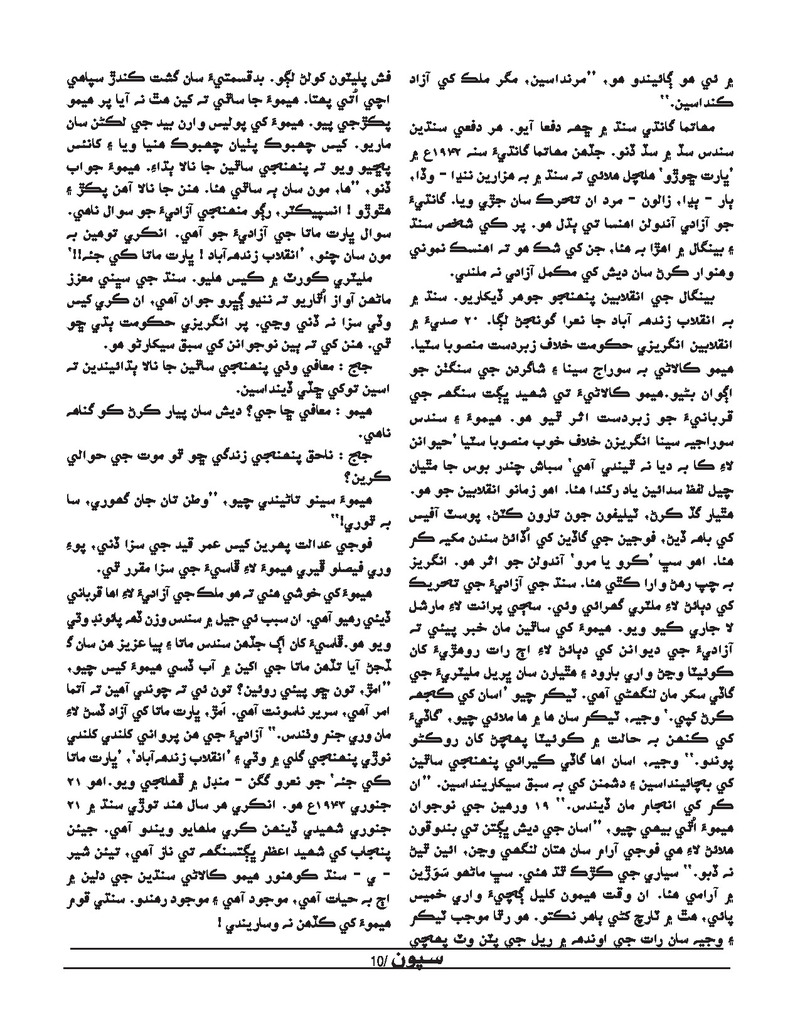 ۾ ئي هو ڳائيندو هو، ”مرنداسين، مگر ملڪ کي آزاد
ڪنداسين.“
مهاتما گانڌي سنڌ ۾ ڇهه دفعا آيو. هر دفعي سنڌين
سندس سڏ ۾ سڏ ڏنو. جڏهن مهاتما گانڌيءَ سنه ۱۹۴۲ع ۾
’ڀارت ڇوڙو‘ هلچل هلائي ته سنڌ ۾ به هزارين ننڍا - وڏا،
ٻار - ٻڍا، زالون - مرد ان تحرڪ سان جڙي ويا. گانڌيءَ
جو آزادي آندولن اهنسا تي ٻڌل هو. پر ڪي شخص سنڌ
۽ بينگال ۾ اهڙا به هئا، جن کي شڪ هو ته اهنسڪ نموني
وهنوار ڪرڻ سان ديش کي مڪمل آزادي نه ملندي.
بينگال جي انقلابين پنهنجو جوهر ڏيکاريو. سنڌ ۾
به انقلاب زنده آباد جا نعرا گونجڻ لڳا. ۲۰ صديءَ ۾
انقلابين انگريزي حڪومت خلاف زبردست منصوبا سٽيا.
هيمو ڪالاڻي به سوراج سينا ۽ شاگردن جي سنگٺن جو
اڳوان بڻيو.هيمو ڪالاڻيءَ تي شهيد ڀڳت سنگهه جي
قربانيءَ جو زبردست اثر ٿيو هو. هيموءَ ۽ سندس
سوراجيه سينا انگريزن خلاف خوب منصوبا سٽيا ’حيوانن
لاءِ ڪا به ديا نه ٿيندي آهي‘ سباش چندر بوس جا مٿيان
چيل لفظ سدائين ياد رکندا هئا. اهو زمانو انقلابين جو هو.
هٿيار گڏ ڪرڻ، ٽيليفون جون تارون ڪٽڻ، پوسٽ آفيس
کي باهه ڏيڻ، فوجين جي گاڏين کي اُڏائڻ سندن مکيه ڪم
هئا. اهو سڀ ’ڪرو يا مرو‘ آندولن جو اثر هو. انگريز
به چپ رهڻ وارا ڪٿي هئا. سنڌ جي آزاديءَ جي تحريڪ
کي دٻائڻ لاءِ ملٽري گهرائي وئي. سڄي پرانت لاءِ مارشل
لا جاري ڪيو ويو. هيموءَ کي ساٿين مان خبر پيئي ته
آزاديءَ جي ديوانن کي دٻائڻ لاءِ اڄ رات روهڙيءَ کان
ڪوئيٽا وڃڻ واري بارود ۽ هٿيارن سان ڀريل مليٽريءَ جي
گاڏي سکر مان لنگهڻي آهي. ٽيڪم چيو ’اسان کي ڪجهه
ڪرڻ کپي.‘ وجيه، ٽيڪم سان ها ۾ ها ملائي چيو، ’گاڏيءَ
کي ڪنهن به حالت ۾ ڪوئيٽا پهچڻ کان روڪڻو
پوندو.“ وجيه، اسان اها گاڏي ڪيرائي پنهنجي ساٿين
کي بچائينداسين ۽ دشمن کي به سبق سيکارينداسين. ”ان
ڪم کي انجام مان ڏيندس.“ ۱۹ ورهين جي نوجوان
هيموءَ اُٿي بيهي چيو، ”اسان جي ديش ڀڳتن تي بندوقون
هلائڻ لاءِ هي فوجي آرام سان هتان لنگهي وڃن، ائين ٿيڻ
نه ڏبو.“ سياري جي ڪڙڪ ٿڌ هئي. سڀ ماڻهو سَوَڙين
۾ آرامي هئا. ان وقت هيمون کليل ڳچيءَ واري خميس
پائي، هٿ ۾ ٽارچ کڻي ٻاهر نڪتو. هو رٿا موجب ٽيڪم
۽ وجيه سان رات جي اونده ۾ ريل جي پٽن وٽ پهچي
فش پليٽون کولڻ لڳو. بدقسمتيءَ سان گشت ڪندڙ سپاهي
اچي اُتي پهتا. هيموءَ جا ساٿي ته کين هٿ نه آيا پر هيمو
پڪڙجي پيو. هيموءَ کي پوليس وارن بيد جي لڪڻن سان
ماريو. کيس چهبوڪ پٺيان چهبوڪ هنيا ويا ۽ کائنس
پڇيو ويو ته پنهنجي ساٿين جا نالا ٻڌاءِ. هيموءَ جواب
ڏنو، ”ها، مون سان ٻه ساٿي هئا. هنن جا نالا آهن پڪڙ ۽
هٿوڙو ! انسپيڪٽر، رڳو منهنجي آزاديءَ جو سوال ناهي.
سوال ڀارت ماتا جي آزاديءَ جو آهي. انڪري توهين به
مون سان چئو، ’انقلاب زندهه آباد ! ڀارت ماتا ڪي جئه!!‘
مليٽري ڪورٽ ۾ ڪيس هليو. سنڌ جي سڀني معزز
ماڻهن آواز اُٿاريو ته ننڍيو ڳڀرو جوان آهي، ان ڪري کيس
وڏي سزا نه ڏني وڃي. پر انگريزي حڪومت ٻڌي ڇو
ٿي. هنن کي ته ٻين نوجوانن کي سبق سيکارڻو هو.
جج : معافي وٺي پنهنجي ساٿين جا نالا ٻڌائيندين ته
اسين توکي ڇڏي ڏينداسين.
هيمو : معافي ڇا جي؟ ديش سان پيار ڪرڻ ڪو گناهه
ناهي.
جج : ناحق پنهنجي زندگي ڇو ٿو موت جي حوالي
ڪرين؟
هيموءَ سينو تاڻيندي چيو، ”وطن تان جان گهوري، سا
به ٿوري!“
فوجي عدالت پهرين کيس عمر قيد جي سزا ڏني، پوءِ
وري فيصلو ڦيري هيموءَ لاءِ ڦاسيءَ جي سزا مقرر ٿي.
هيموءَ کي خوشي هئي ته هو ملڪ جي آزاديءَ لاءِ اها قرباني
ڏيئي رهيو آهي. ان سبب ئي جيل ۾ سندس وزن ڏهه پائونڊ وڌي
ويو هو.ڦاسيءَ کان اڳ جڏهن سندس ماتا ۽ ٻيا عزيز هن سان گ
ڏجڻ آيا تڏهن ماتا جي اکين ۾ آب ڏسي هيموءَ کيس چيو،
”امڙ، تون ڇو پيئي روئين؟ تون ئي ته چوندي آهين ته آتما
امر آهي، سرير ناسونت آهي. اَمڙ، ڀارت ماتا کي آزاد ڏسڻ لاءِ
مان وري جنم وٺندس.“ آزاديءَ جي هن پرواني کلندي کلندي
نوڙي پنهنجي ڳلي ۾ وڌي ۽ ’انقلاب زندهه آباد‘، ’ڀارت ماتا
ڪي جئه‘ جو نعرو گگن - منڊل ۾ ڦهلجي ويو.اهو ۲۱
جنوري ۱۹۴۳ع هو. انڪري هر سال هند توڙي سنڌ ۾ ۲۱
جنوري شهيدي ڏينهن ڪري ملهايو ويندو آهي. جيئن
پنجاب کي شهيد اعظم ڀڳتسنگهه تي ناز آهي، تيئن شير
- ي - سنڌ ڪوهنور هيمو ڪالاڻي سنڌين جي دلين ۾
اڄ به حيات آهي، موجود آهي ۽ موجود رهندو. سنڌي قوم
هيموءَ کي ڪڏهن نه وساريندي !
سپون /10